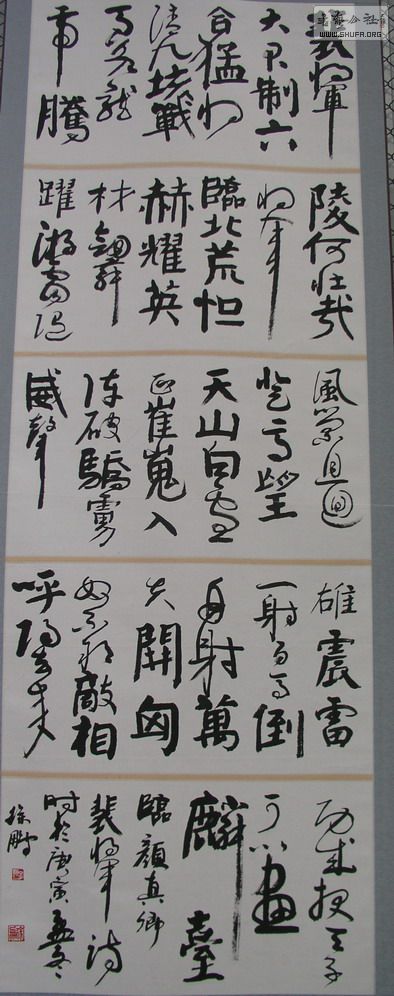 书法公社
WWW.SHUFA.ORG
裴將軍
大君制六
合猛將
清九垓戰
馬若龍
虎騰
陵何壯哉
將軍
臨北荒恒
赫耀英
材劍舞
躍游雷隨
風縈且迴
登高望
天山白雪
正崔嵬入
陣破驕虜
威聲
雄震雷
一射百馬倒
再射萬
夫開匈
奴不敢敵相
呼歸去來
功成報天子
可以畫
麟臺
臨顏真卿
裴將軍詩
时於庚寅孟冬
徐鵬